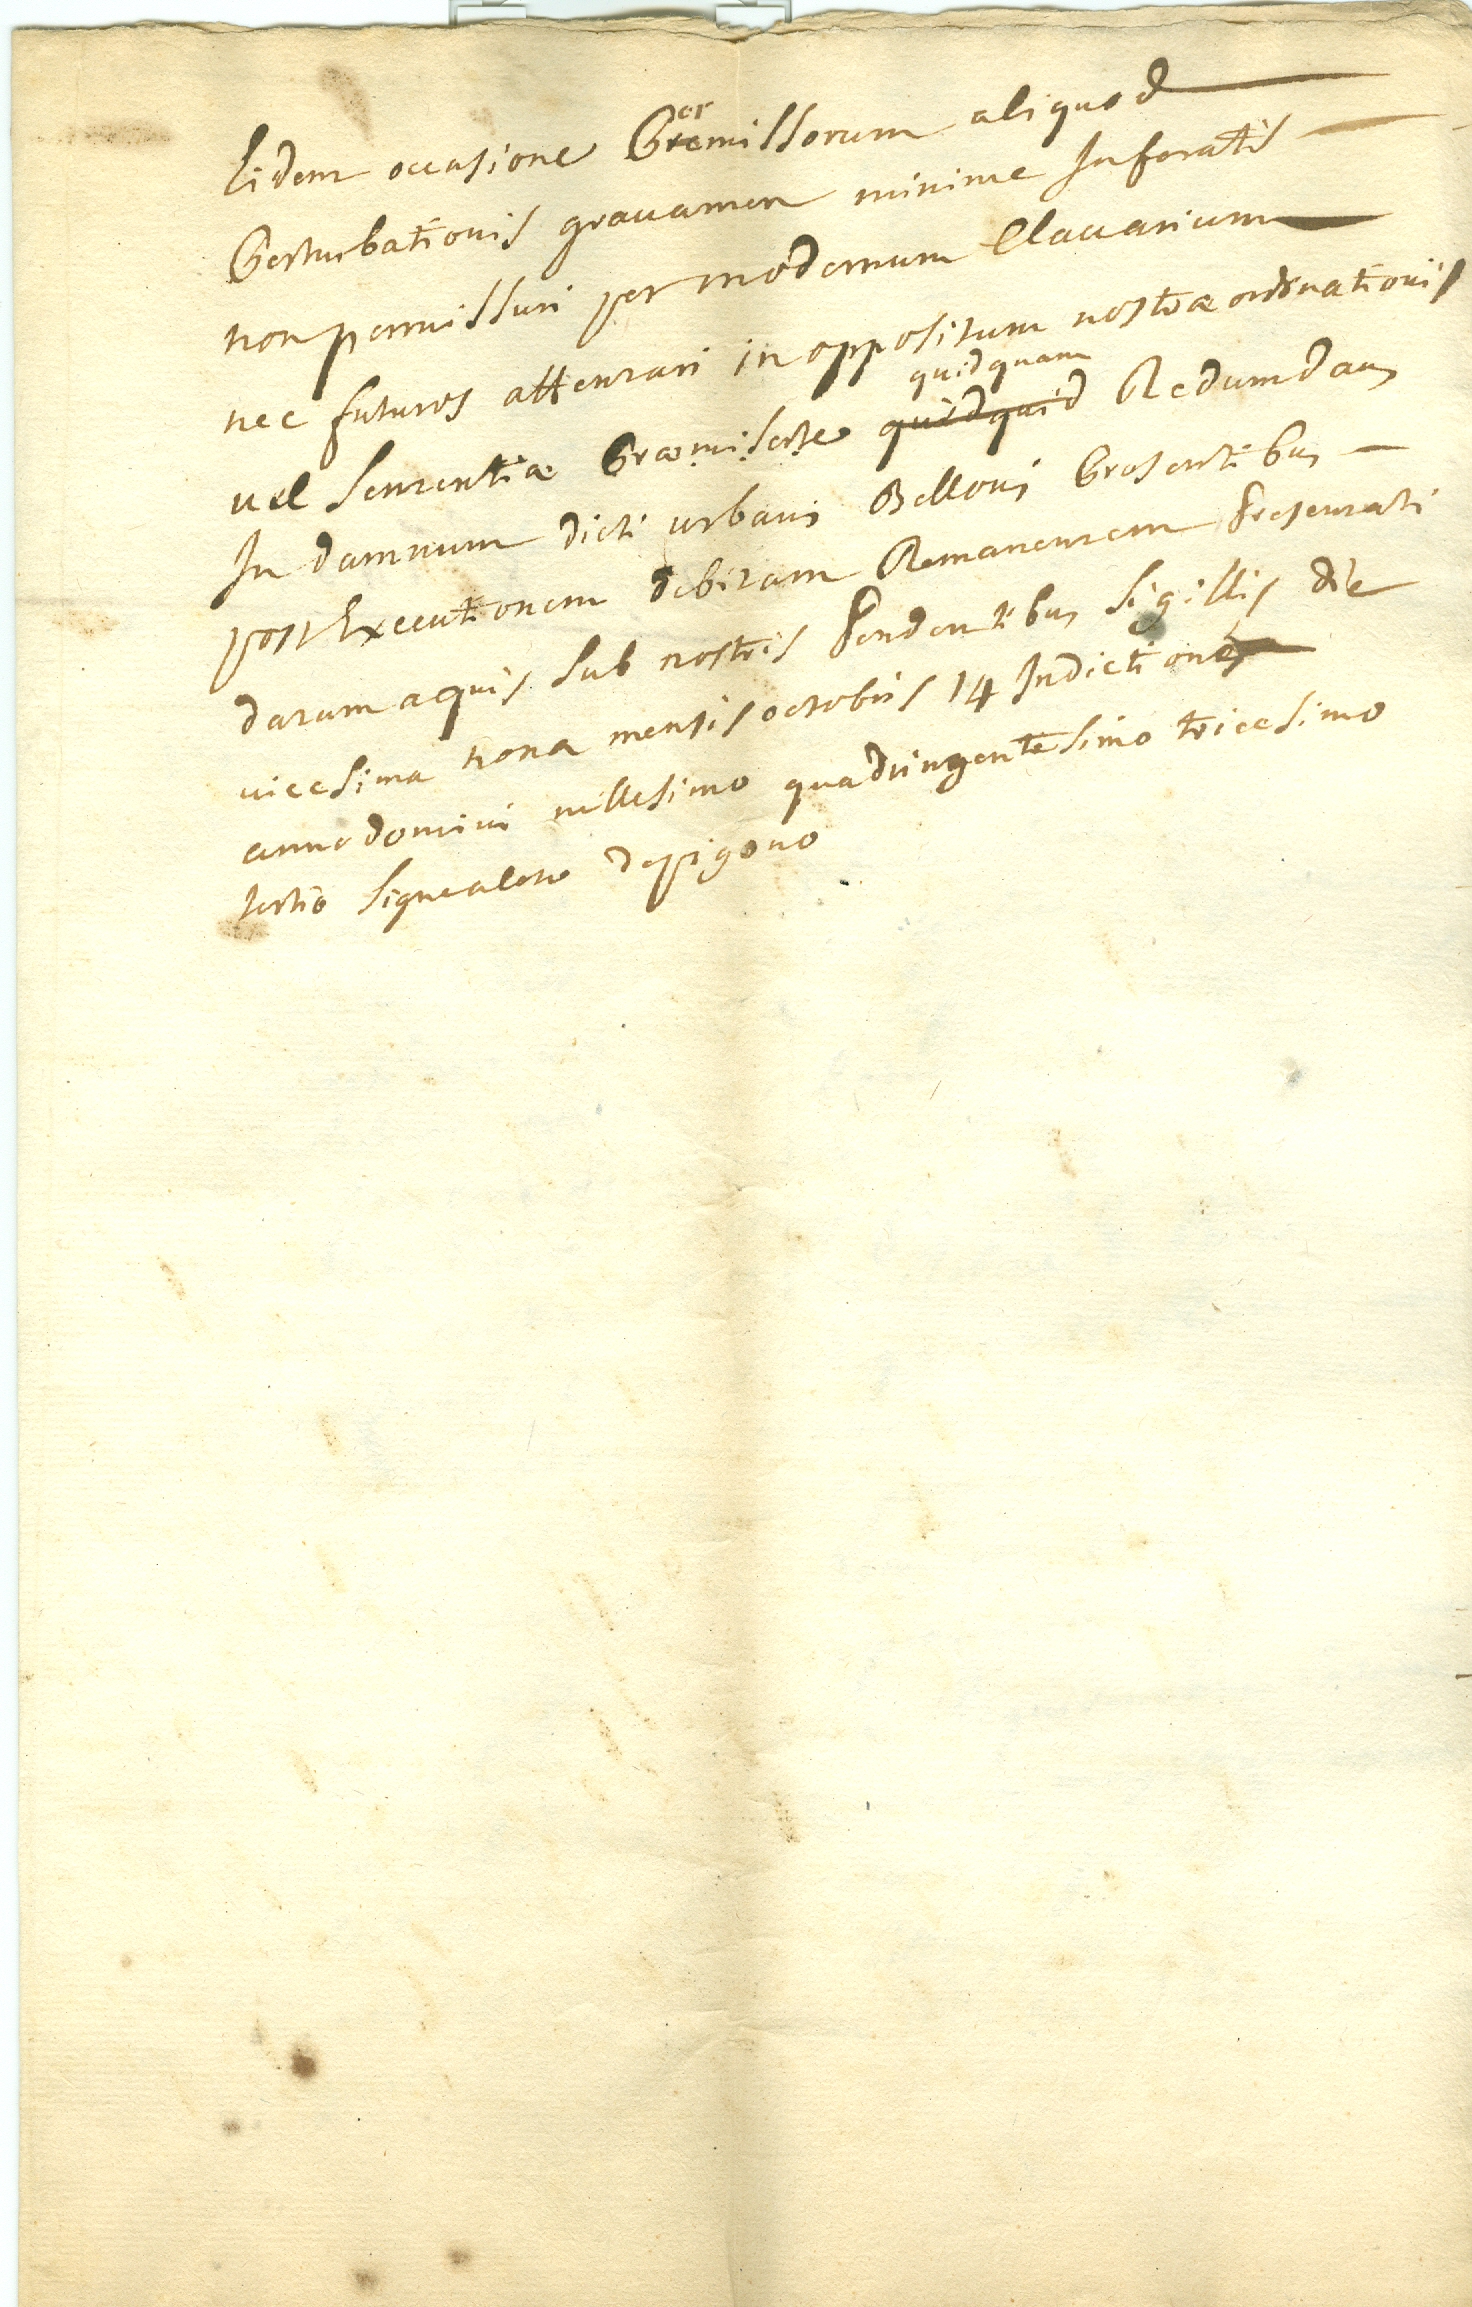 Eidem occasione Premissorum aliquod
Perturbationis grauamen minime Inferatis
non permissuri per modernum Clauarium
nec futuros attentari in oppositum nostræ ordinationis
uel Sententiæ Præmisse quidquid quidquam Redundans
In damnum dicti urbani Belloni Presentibus
post Executionem debitam Remanentem Presentati
datum aquis Sub nostris Pendentibus Sigillis die
uicesima nona mensis octobris 14 Indictiones
anno domini millesimo quadringentesimo tricesimo
tertio Signe depigono